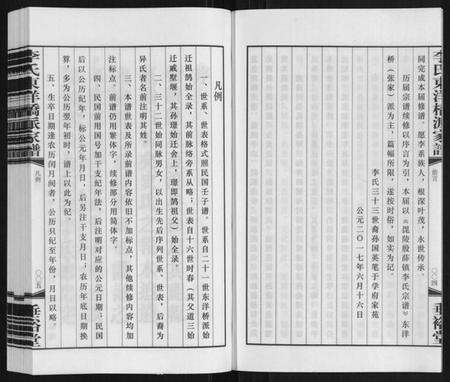 李氏東洋橋派家譜
卷首
〇〇四
垂裕堂
同完成本届修谱,愿李系族人,根深叶茂,永世传承。
历届宗谱续修以序言为引,本届以《毘陵殷薛镇李氏宗谱》东洋
桥(张家)派为主,篇幅所限,遂按时俗,如实为记。
李氏三十三世裔孙国英笔于学府家苑
公元二〇一七年六月十六日
凡例
一、世系、世表格式照民国壬子谱,世系自二十一世东洋桥派始
迁祖鹄始全录,其前承脉络旁系从略;世表自十六世时春(其父道三始
迁戚墅堰,其孙璟始迁舍上,璟即鹄祖父)始全录。
二、三十二世始同脉男女,以出生先后序列世系、世表,后裔为
异氏者名前注明其姓。
三、本谱世表及所录前谱内容依旧不加标点,其他续修内容均加
注标点。前谱仍用繁体字,续修部分用简体字。
四、民国前用国号加干支纪年法,后注明对应的公元日期;民国
后以公历纪年,标公元年月日,后另注干支月日,农历年底日期换
算,多为公历翌年初时,谱上以此为记。
五、生卒日期逢农历闰月间者,公历只纪至年份,月日以略。
李氏東洋橋派家譜
凡例
〇〇五
垂裕堂